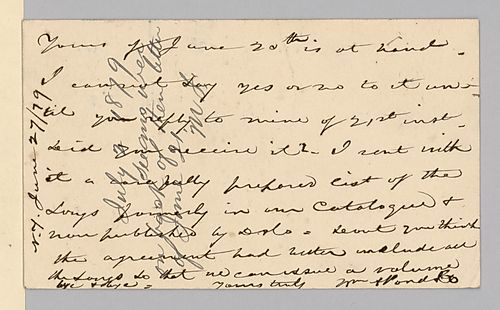 Yours of June 20th is at hand.
I cannot say yes or no to it un-
til you reply to mine of 21st inst.
Did you receive it? I sent with
it a carefully prepared list of the
Songs formerly in our Catalogue &
now published by D & Co — Dont you think
the agreement had better include all
the songs so that we can issue a volume
&c &c — Yours truly Wm A Pond & Co
N.Y. June 27/79
July 1879